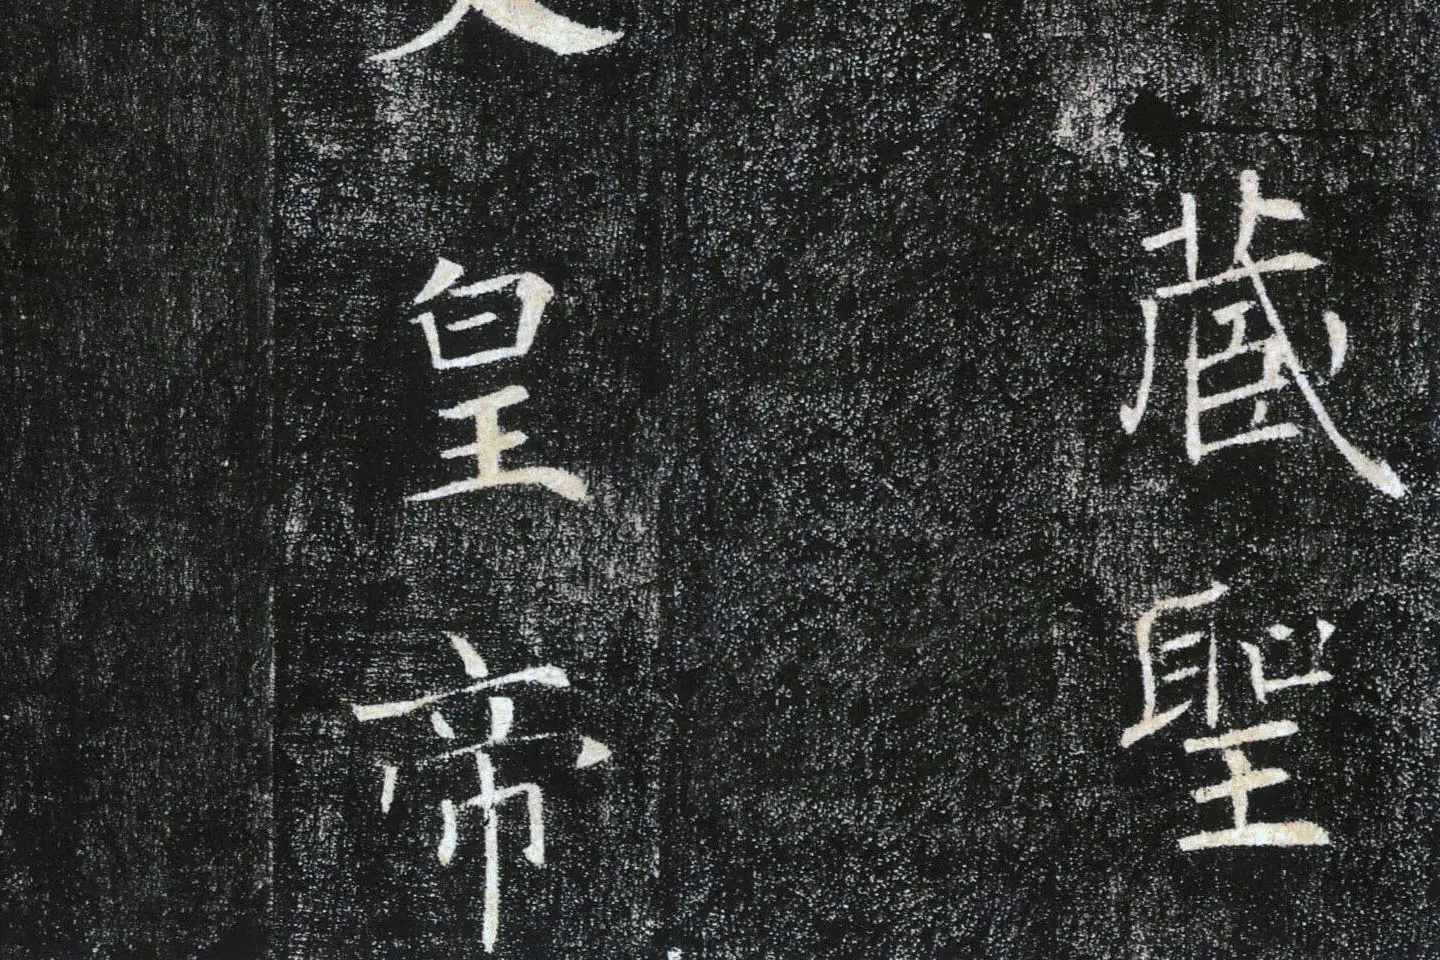 藏聖
皇帝